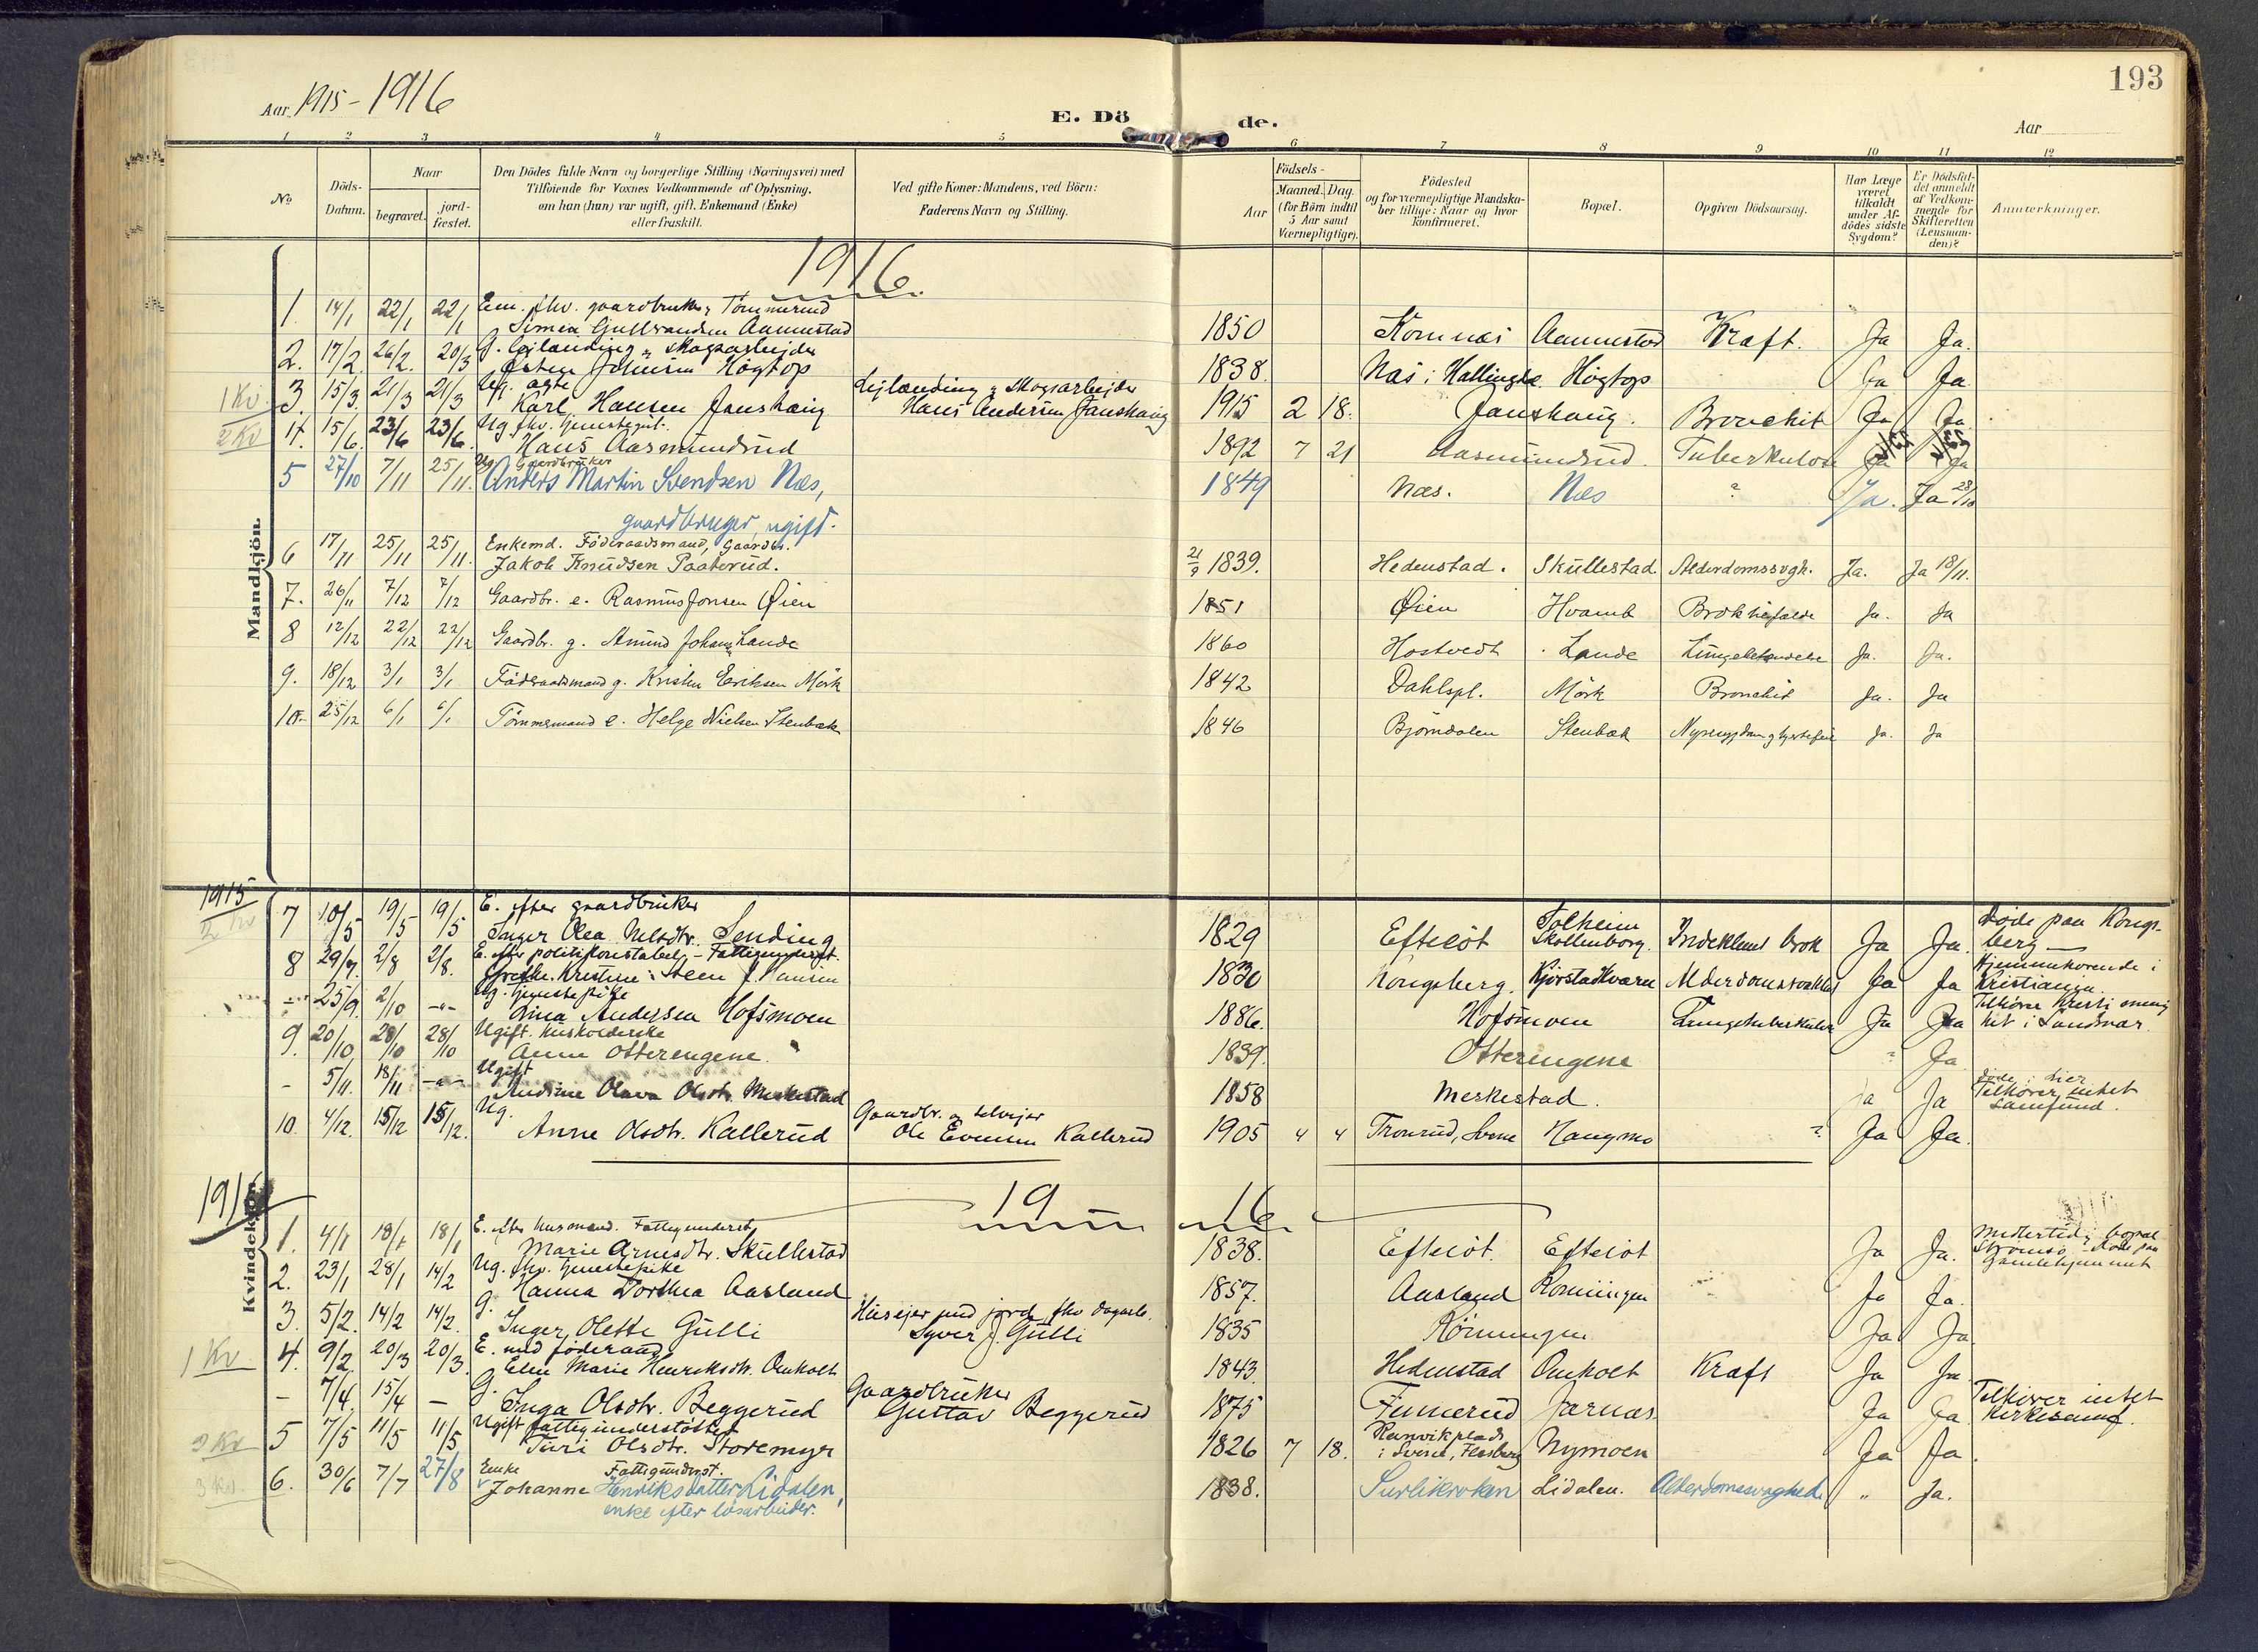 193
Aar 1915-1916
E. Dö
de.
Aar
1 2 3 4 5 6 7 8 9 10 11 12
No
Döds-
Datum.
Naar
begravet.
jord-
fæstet.
Den Dödes fulde Navn og borgerlige Stilling (Næringsvei) med
Tilföiende for Voxnes Vedkommende af Oplysning,
om han (hun) var ugift, gift, Enkemand (Enke)
eller fraskilt.
Ved gifte Koner: Mandens, ved Börn:
Faderens Navn og Stilling.
Födsels-
Aar
Maaned. Dag.
(for Börn indtil
5 Aar samt
Værnepligtige).
Födested
og for værnepligtige Mandska-
ber tillige: Naar og hvor
konfirmeret.
Bopæl.
Opgiven Dödsaarsag.
Har Læge
været
tilkaldt
under Af-
dödes sidste
Sygdom?
Er Dödsfal-
det anmeldt
af Vedkom-
mende for
Skifteretten
(Lensman-
den)?
Anmærkninger.
Mandkjön.
1916.
1. 14/1 22/1 22/1 Em. fhv. gaardbruker, Tömmerund
Simen Gulbrandsen Aannestad 1850 Komnæs Aannestad Kraft. Ja Ja.
2. 17/2 26/2. 20/3 g. Leilænding og skogsarbeider
Østen Johnsen Högtop 1838. Næs i Hallingd. Högtop Ja Ja
1 Kv. 3. 15/3 21/3 21/3 Ug. ægte Leilænding og skogsarbeider
Karl Hansen Jonshaug Hans Andersen Jonshaug 1915 2 18. Jonshaug. Bronchit Ja Ja.
2 Kv 4. 15/6. 23/6 23/6. Ug. fhv. tjenestegut.
Hans Aasmundrud 1892 7 21 Aasmundrud. Tuberkulose Ja Ja
5 27/10 7/11 25/11. Ug. Gaardbruker
Anders Martin Svendsen Næs, 1849 Næs. Næs ? Ja. Ja 28/10
gaardbruger, ugift.
6 17/11 25/11 25/11. Enkemd. Föderaadsmand, Gaardbr.
Jakob Knudsen Paaterud. 21/9 1839. Hedenstad. Skullestad Alderdomssvgh. Ja. Ja 18/11.
7. 26/11 7/12 7/12 Gaardbr. e. Rasmus Jonsen Øien 1851 Øien Hvamb Ja. Ja
8 12/12 22/12 22/12 Gaardbr. g. Amund Johans. Lande 1860 Hostvedt Lande Lungebetændelse Ja. Ja.
9. 18/12 3/1 3/1 Föderaadsmand g. Kristen Eriksen Mörk 1842 Dahlspl. Mörk Bronchit Ja. Ja
10. 25/12 6/1 6/1 Tömmermand e. Helge Nielsen Stenbæk 1846 Björndalen Stenbæk Nyresygdom og hjertefeil Ja. Ja
Kvindekjön.
1915
7 10/5 19/5 19/5 E. efter gaardbruker
Inger Olea Nelsdtr. Sending 1829 Efteløt Solheim
Skollenborg. Indeklemt brok Ja Ja. Døde paa Kongs-
berg
8 29/7. 2/8 2/8. E. efter politikonstabel - Fattigunderst.
Grethe Kristine Steen f. Hansen 1830 Kongsberg. Kjørstadkværn Alderdomssvakhet Ja Ja Hjemmehørende i
Kristiania.
- 25/9. 2/10 -"- Ug. tjenestepike
Lina Andersen Hofsmoen 1886. Hofsmoen Lungetuberkulose Ja Ja Tilhører Kristi menig
het i Sandsvær.
9. 20/10 28/10 28/10 Ugift. husholderske
Anne Otterengene. 1839. Otterengene ? Ja.
- 5/11. 18/11 -"- Ugift
Andrine Olava Olsdtr. Meskestad 1858 Meskestad. Ja Ja Døde i Lier
Tilhører intet
samfund.
10. 4/12. 15/12 15/12. Ug. Gaardbr. og selveier
Anne Olsdtr. Kallerud Ole Evensen Kallerud 1905 4 4 Tronrud, Svene Haugmo ? Ja Ja.
1916
1916
1. 4/1 18/1 18/1 E. efter husmand. Fattigunderst.
Marie Arnesdtr. Skullestad 1838. Efteløt. Efteløt Ja Ja. Midlertidig bopæl
Strømsø - døde paa
Gamlehjemmet
2. 23/1 28/1 14/2 Ug. fhv. tjenestepike
Hanna Dorthea Aasland 1857. Aasland Ja Ja.
3. 5/2. 14/2 14/2. G. Huseier med jord, fhv dagarb.
Inger Olette Gulli Syver J. Gulli 1835 Rönningen Ja Ja
1 Kv 4. 9/2 20/3 20/3. E. med föderaad
Elen Marie Henriksdtr. Omholt 1843. Hedenstad Omholt Kraft Ja Ja
- 7/4. 15/4 - G. Gaardbruker
Inga Olsdtr. Beggerud Gustav Beggerud 1875 Funnerud Jarnæs. Ja Ja Tilhører intet
kirkesamf.
2 Kv 5 7/5 11/5 11/5 Ugift fattigunderstöttet
Turi Olsdtr. Storemyr 1826 7 18. Ranvikplads
i Svene, Flesberg Nymoen Ja Ja.
3 Kv. 6. 30/6 7/7 27/8 Enke Fattigunderst.
Johanne Henriksdatter Lidalen, 1838. Surlikroken Lidalen. Alderdomssvaghed. " Ja.
enke efter løsarbeider.